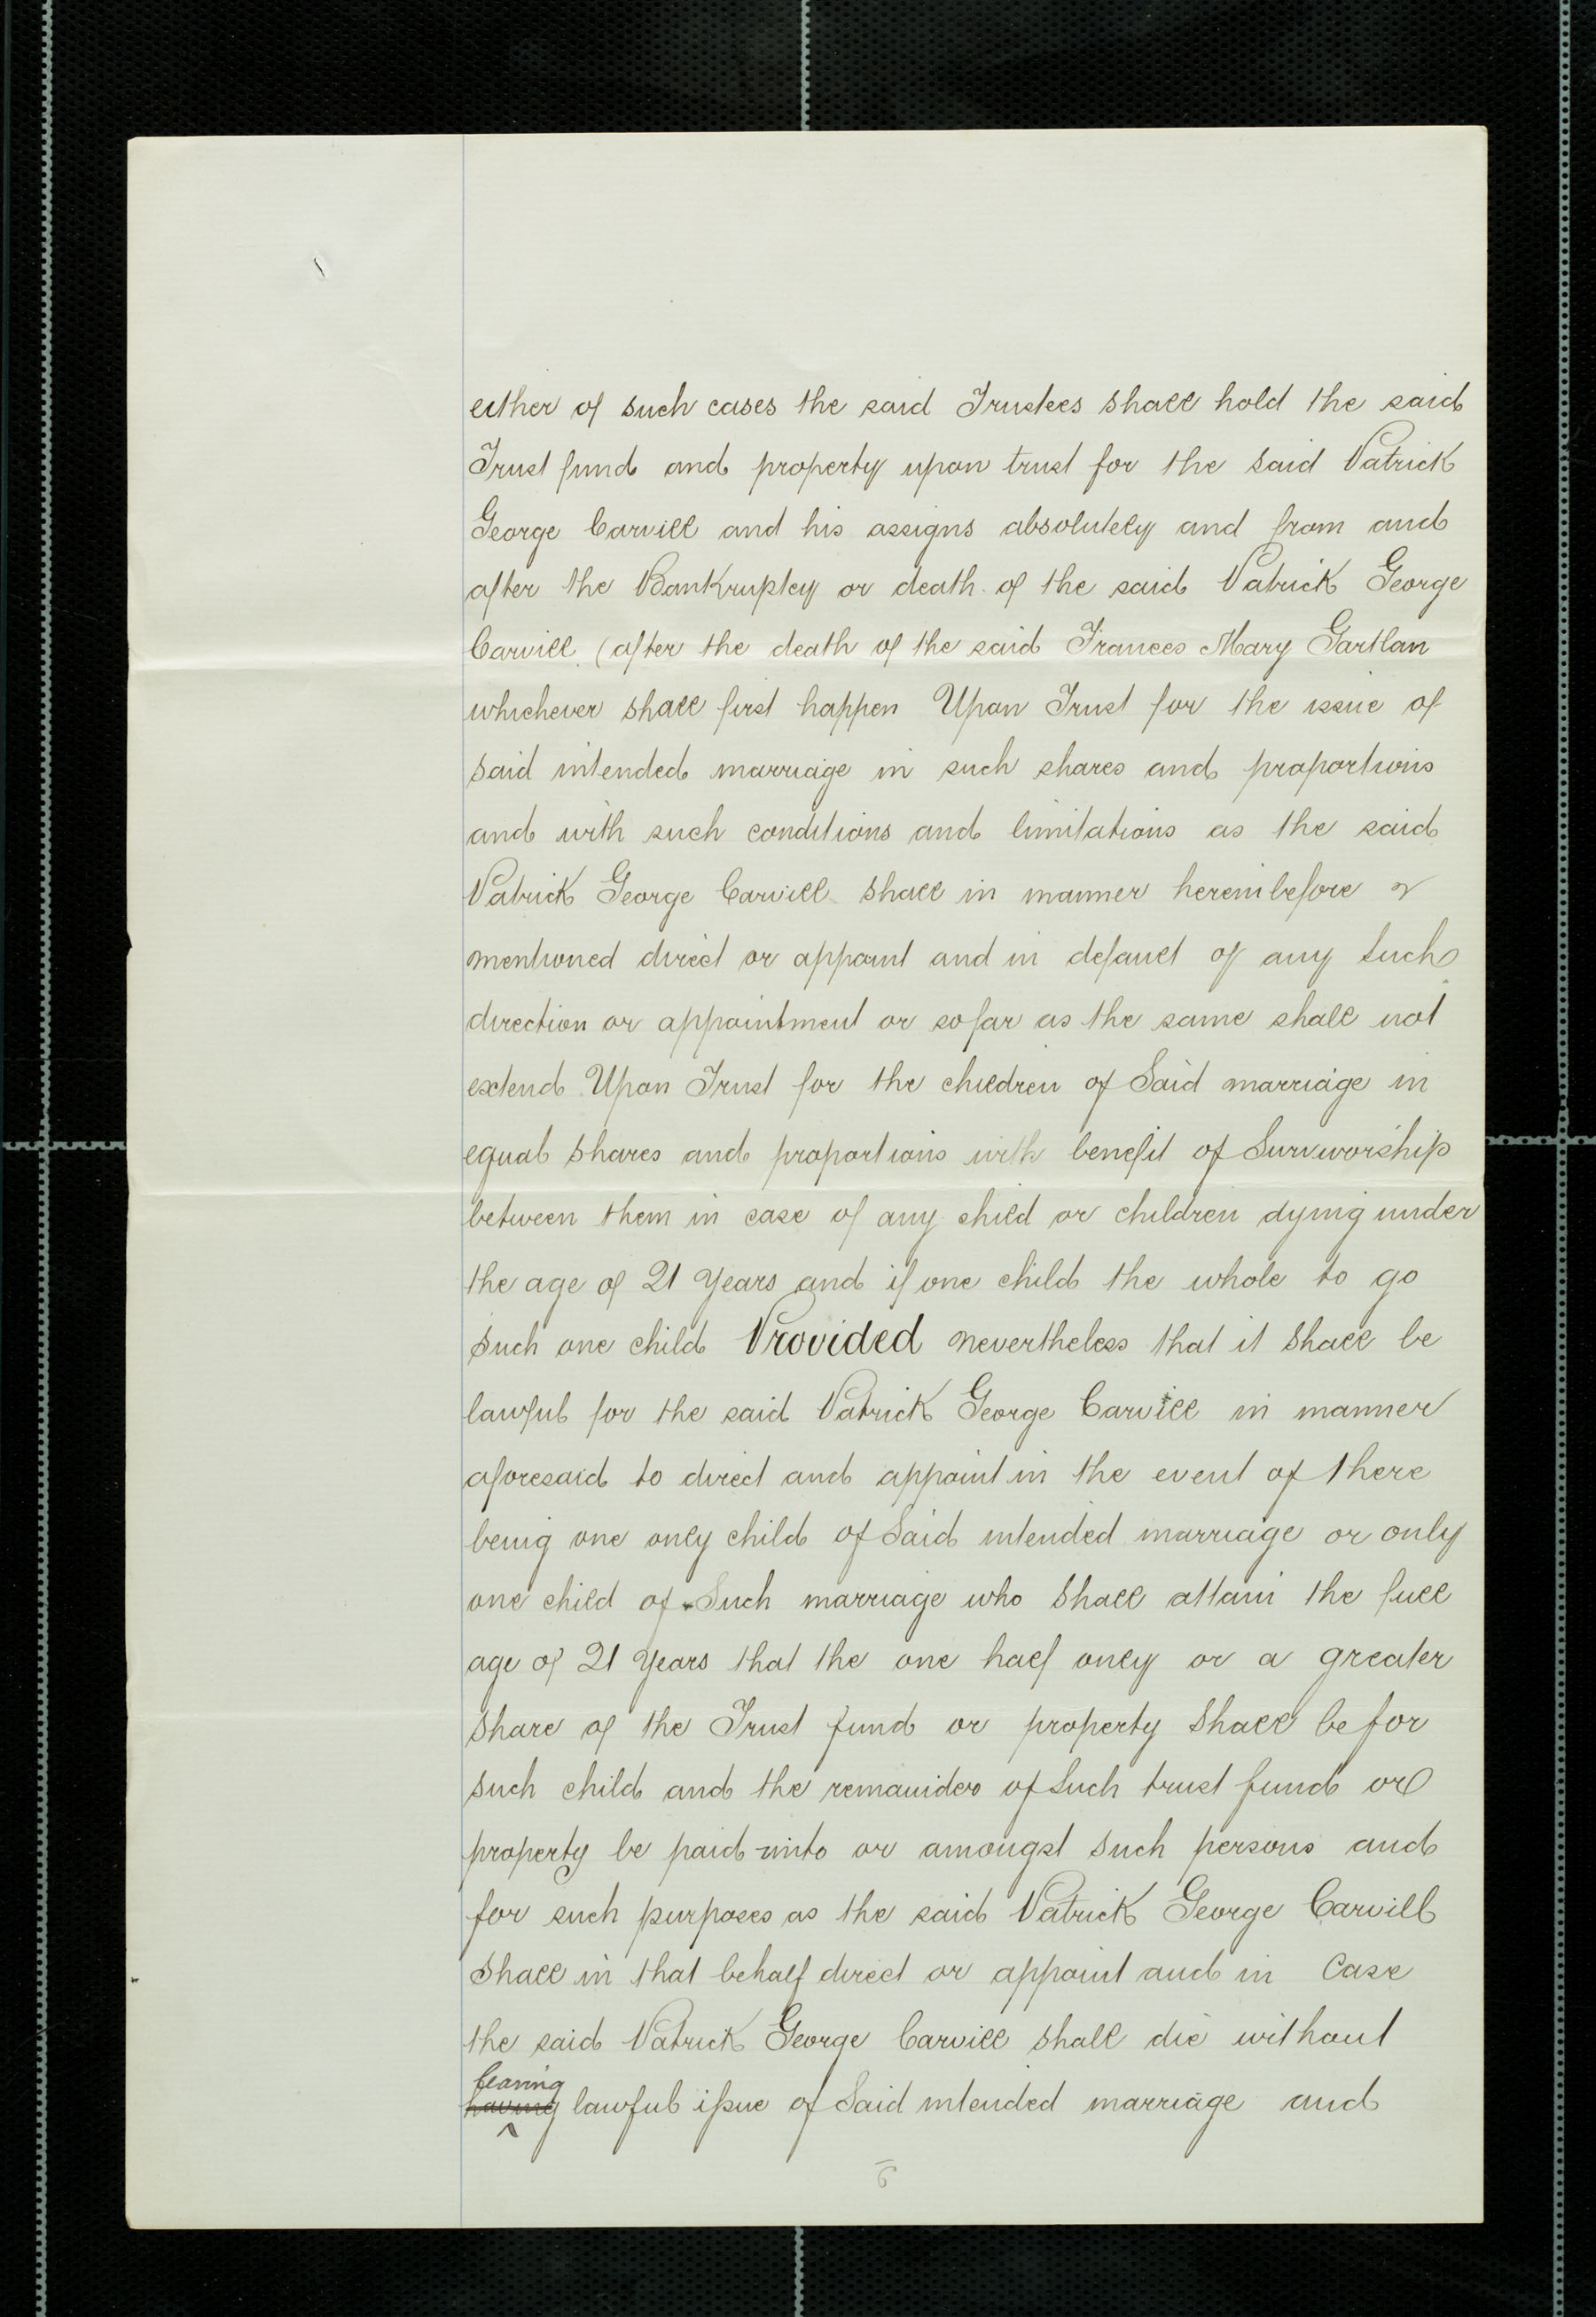 either of such cases the said Trustees shall hold the said
Trust fund and property upon trust for the said Patrick
George Carvill and his assigns absolutely and from and
after the Bankruptcy or death of the said Patrick George
Carvill (after the death of the said Frances Mary Gartlan
whichever shall first happen Upon Trust for the issue of
said intended marriage in such shares and proportions
and with such conditions and limitations as the said
Patrick George Carvill shall in manner hereinbefore
mentioned direct or appoint and in default of any such
direction or appointment or so far as the same shall not
extend Upon Trust for the children of Said marriage in
equal shares and proportions with benefit of Survivorship
between them in case of any child or children dying under
the age of 21 Years and if one child the whole to go
such one child Provided nevertheless that it shall be
lawful for the said Patrick George Carvill in manner
aforesaid to direct and appoint in the event of there
being one only child of Said intended marriage or only
one child of Such marriage who shall attain the full
age of 21 Years that the one half only or a greater
share of the Trust fund or property shall be for
such child and the remainder of such trust fund or
property be paid unto or amongst such persons and
for such purposes as the said Patrick George Carvill
shall in that behalf direct or appoint and in Case
the said Patrick George Carvill shall die without
leaving
having lawful issue of Said intended marriage and
6